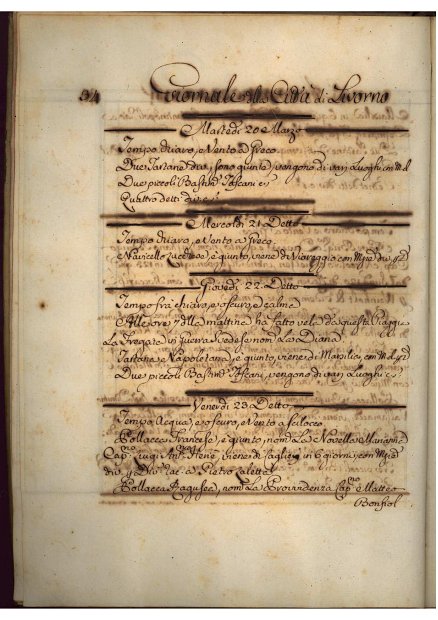 94 Giornale della Città di Livorno
Martedì 20 Marzo
Tempo chiaro, e Vento a Greco
Due Tartane diverse sono giunte, vengono di vari Luoghi con
Due piccoli Bastim.ti Toscani e
Quattro detti
Mercoldì 21 Detto
Tempo chiaro, e Vento a Greco
Navicello Lucchese, è giunto, viene di Viareggio con
Giovedì 22 Detto
Tempo frà chiaro, e oscuro, e calma
Alle ore 7 della mattina ha fatto vela da queste Piaggie
La Fregata in guerra Svedese nom.a La Diana
Tartana Napoletana, è giunta, viene di Marsilia, con
Due piccoli Bastim.ti Toscani, vengono di vari Luoghi
Venerdì 23 Detto
Tempo Acqua, e oscuro, e Vento a Scilocco
Pollacca Francese, è giunta, nom.a La Novella Marianna
Cap.no Luigi viene di Caglieri in 6 giorni, con
a Pietro
Pollacca Ragusea, nom.a La Providenza Cap.no Matteo
Bonfiol